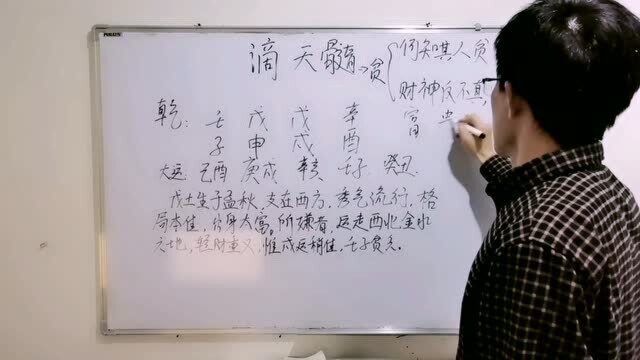 滴天髓→贫
何知其人贫
财神反不真
富
乾: 壬 戊 戊 辛
子 申 戌 酉
大运: 己酉 庚戌 辛亥 壬子 癸丑
戊土生于孟秋,支在西方,秀气流行,格
局本佳,出身大富。所嫌者,运走西北金水
之地,轻财重义,惟戌运稍佳,壬子贫乏。